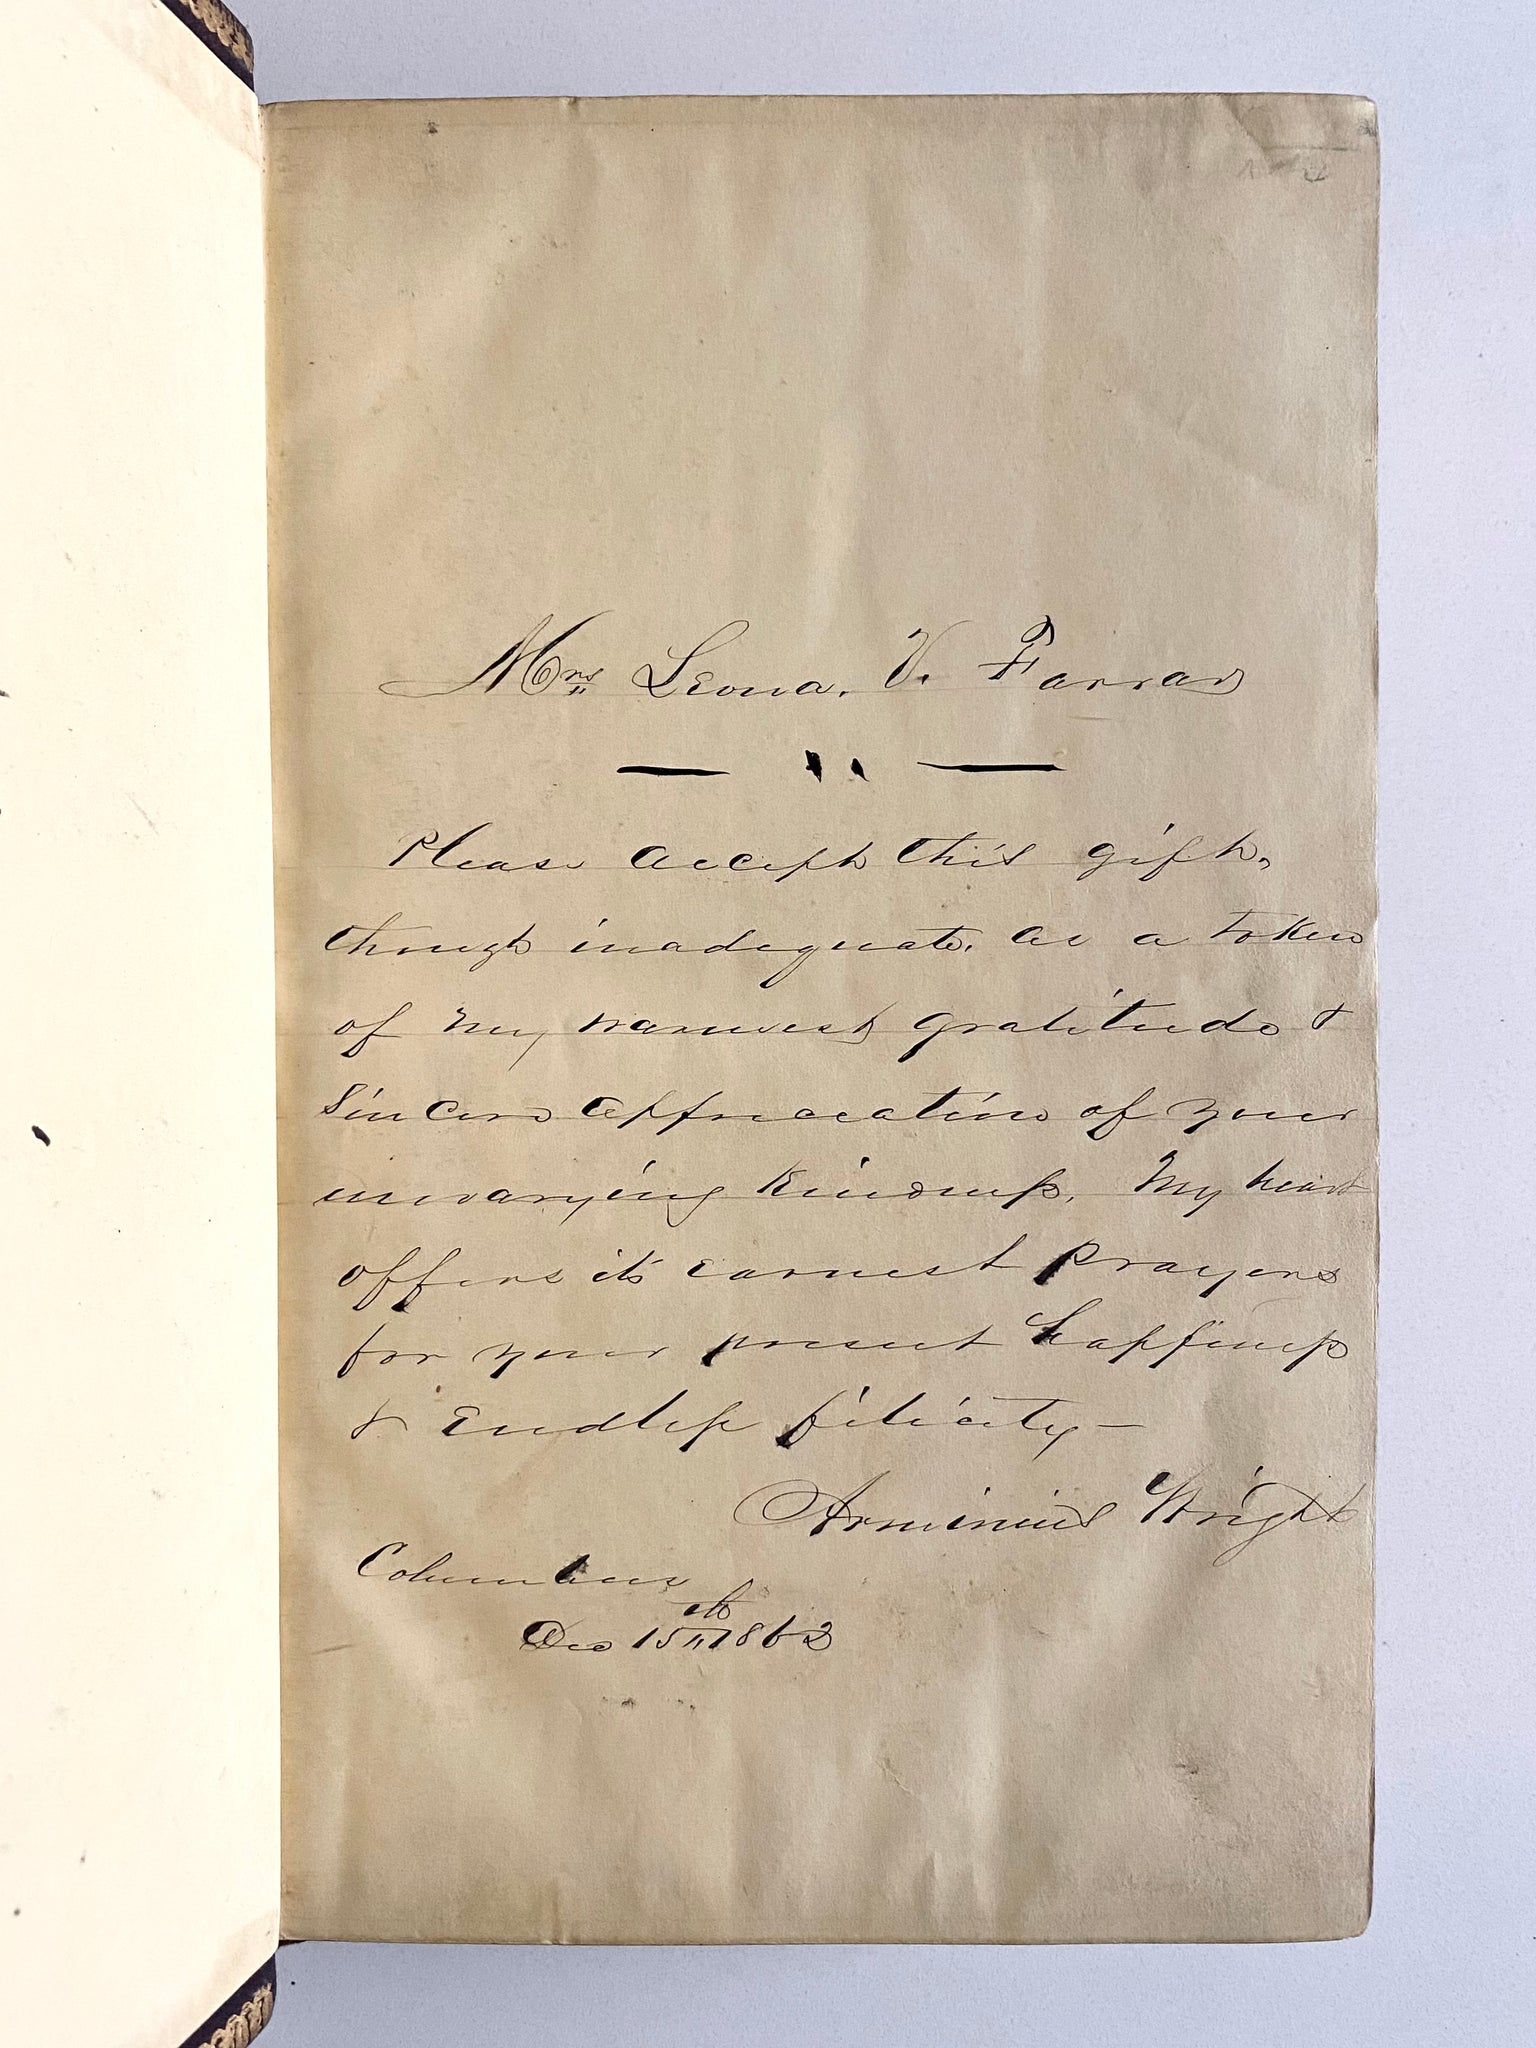 Mrs Leona. V. Farrar
Please accept this gift,
though inadequate, as a token
of my warmest gratitude &
Sincere appreciation of your
unvarying kindness. My heart
offers it's earnest prayers
for your present happiness
& Endless filicity—
Arminius Wright
Columbus
Dec 15th 1862